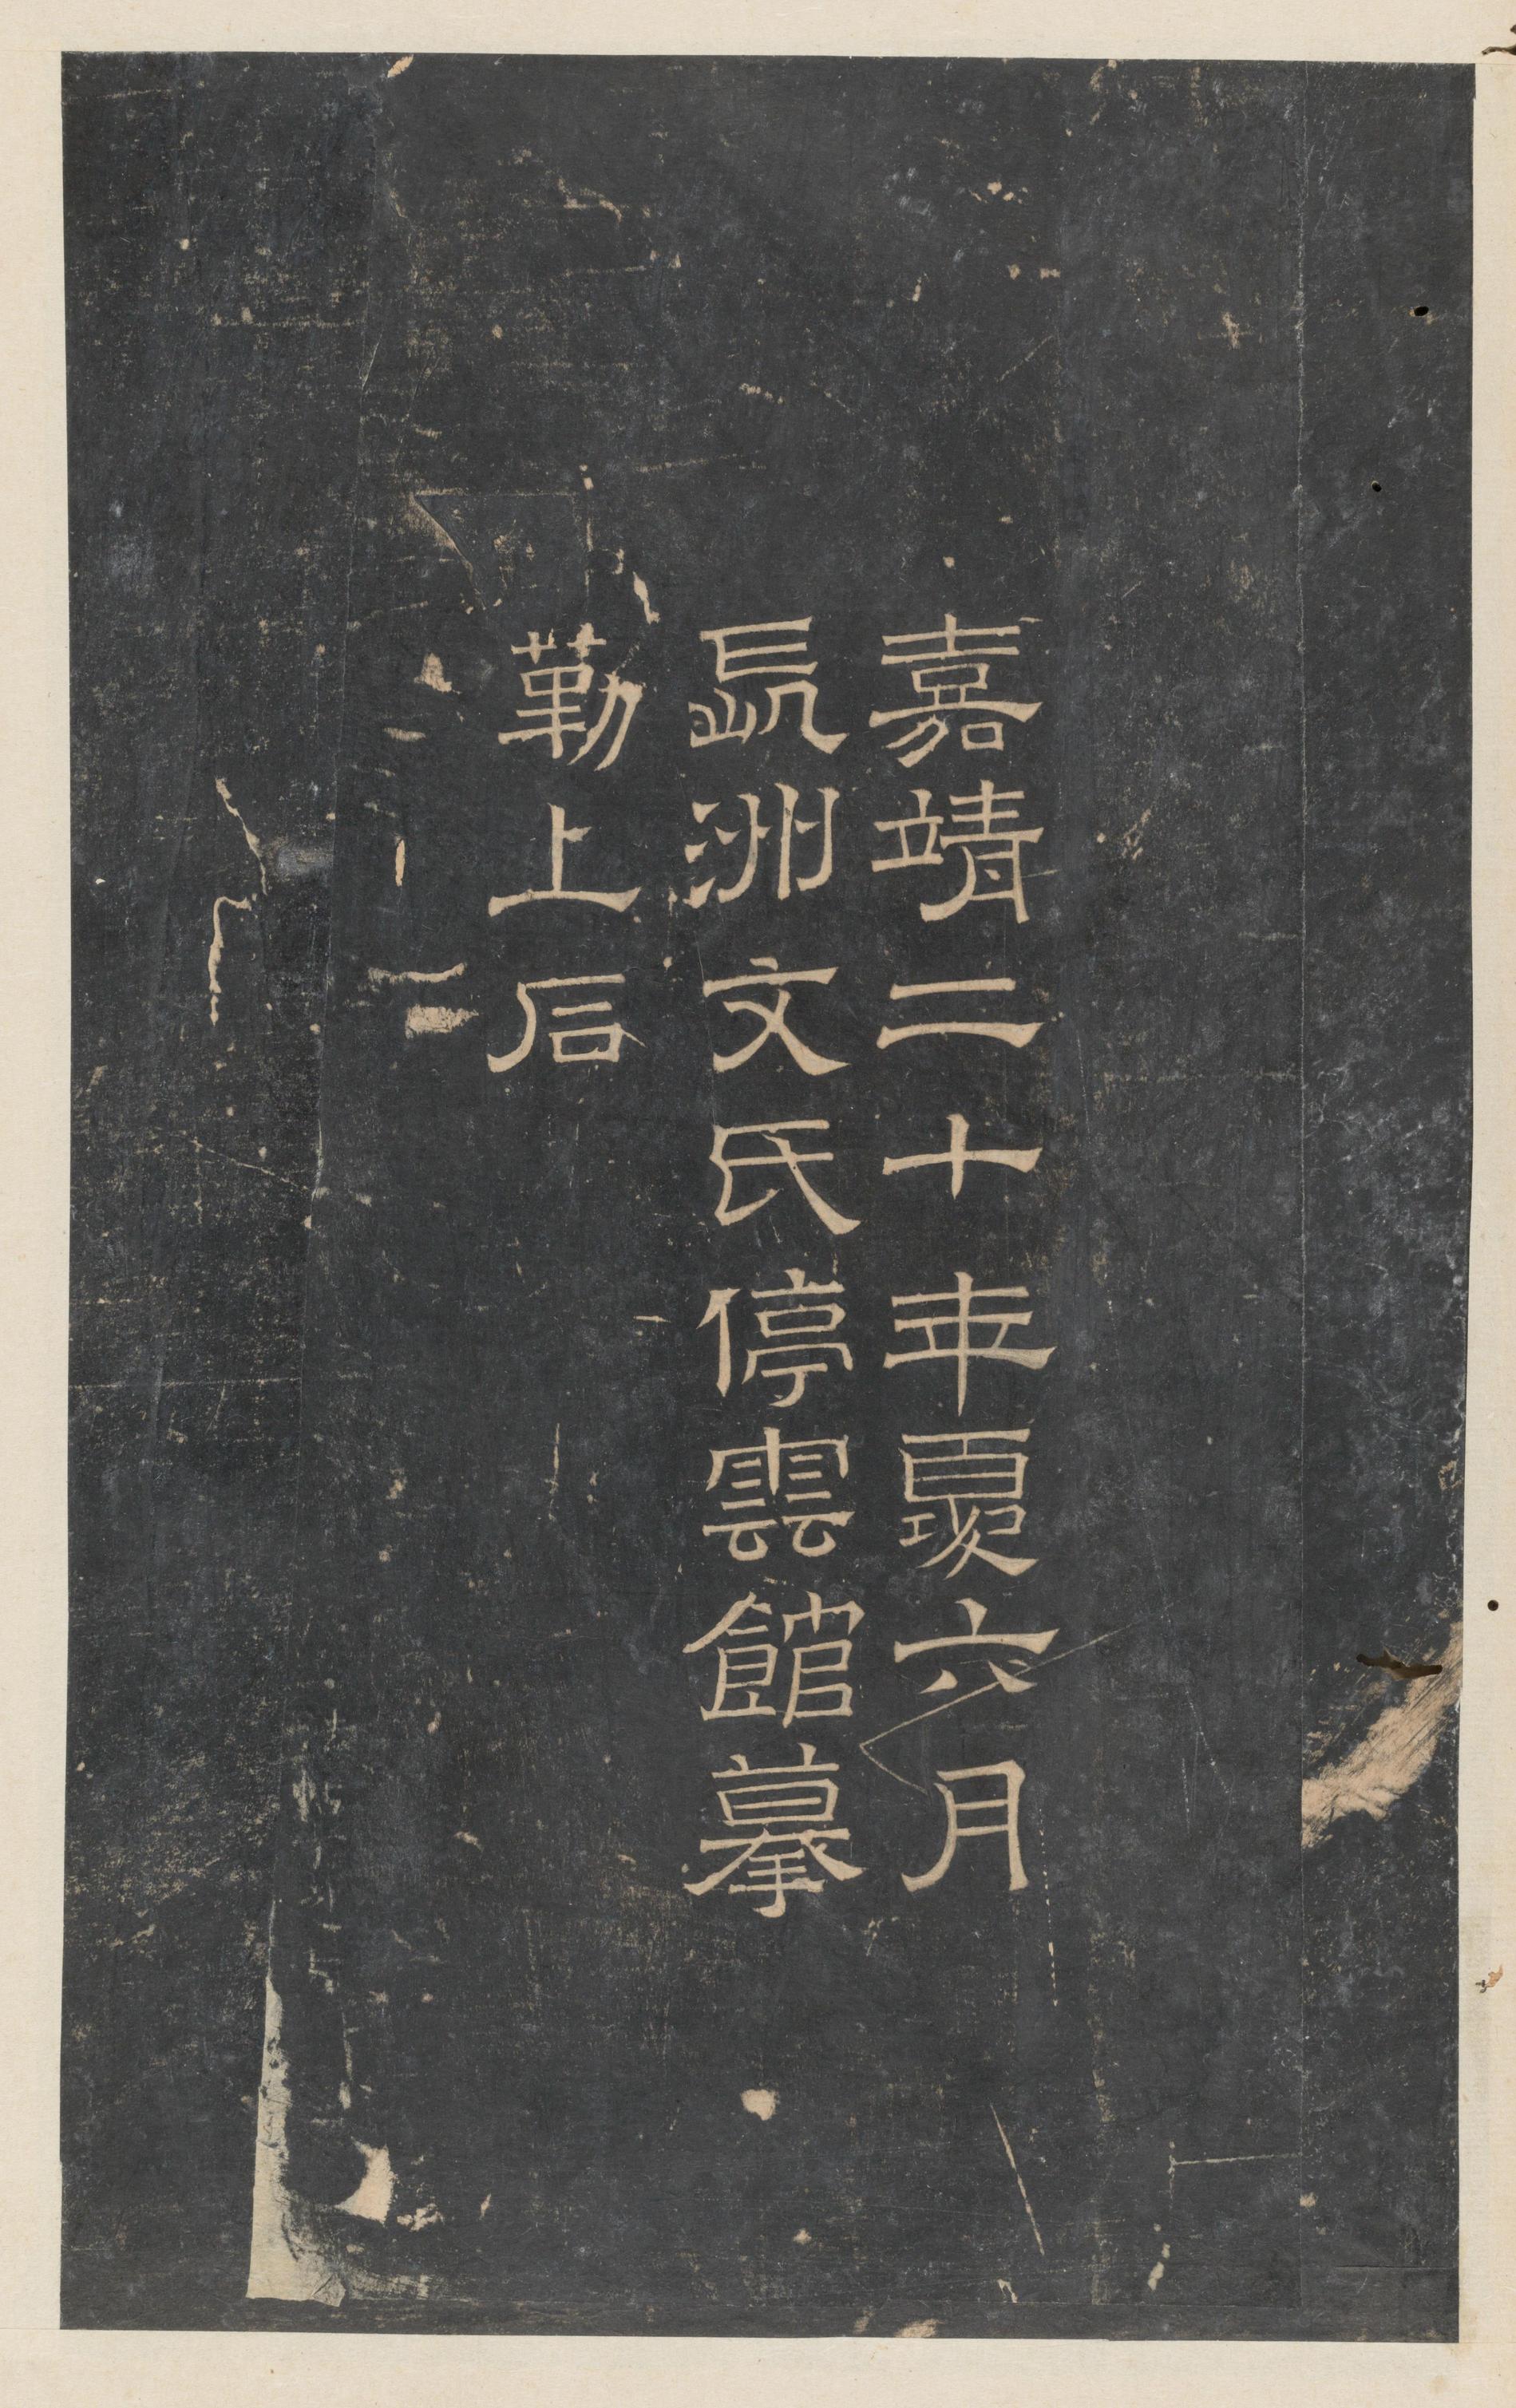 嘉靖二十年夏六月
長洲文氏停雲館摹
勒上石